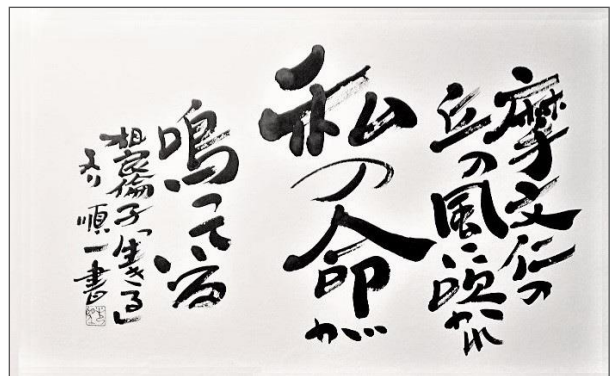 摩文仁の
丘の風に吹かれ
私の命が
鳴っている
相良倫子「生きる」
より 順一書